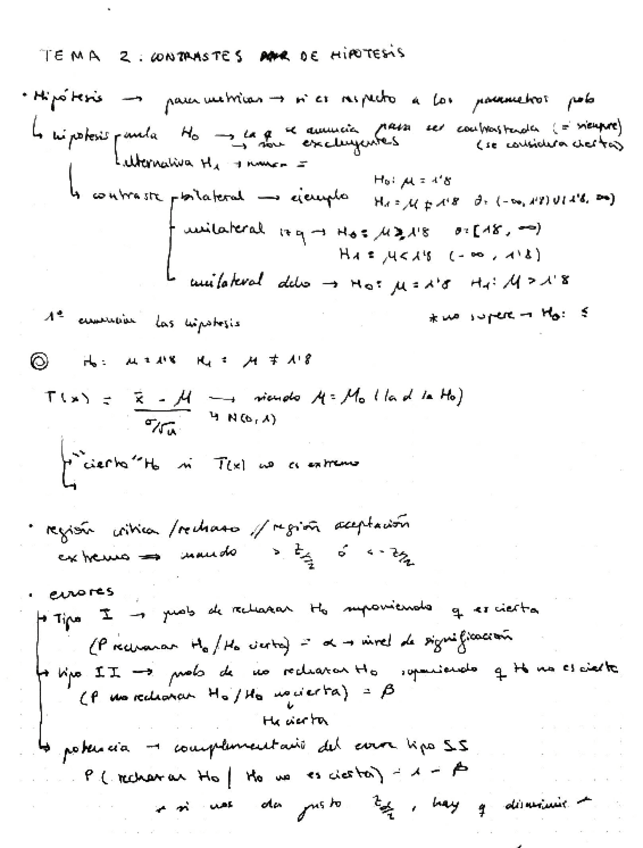 TEMA 2: CONTRASTES DE HIPOTESIS
• Hipótesis → parametricas → si es respecto a los parametros pob
↳ hipotesis nula H₀ → la q se enuncia para ser contrastada (= siempre)
→ son excluyentes (se considera cierta)
alternativa H₁ → nunca =
H₀: μ = 1'8
↳ contraste bilateral → ejemplo H₁ = μ ≠ 1'8 θ: (-∞, 1'8) ∪ (1'8, ∞)
unilateral izq → H₀ = μ ≥ 1'8 θ = [18, ∞)
H₁ = μ < 1'8 (-∞, 1'8)
unilateral dcho → H₀: μ = 1'8 H₁: μ > 1'8
1º enunciar las hipotesis * no supere → H₀: ≤
H₀: μ = 1'8 H₁ = μ ≠ 1'8
T(x) = x̄ - μ / σ/√n → siendo μ = μ₀ (la d la H₀)
↳ N(0,1)
"cierta" H₀ si T(x) no es extremo
• región critica / rechazo // región aceptación
extremo ⇒ cuando > z α/2 ó < - z α/2
• errores
→ Tipo I → prob de rechazar H₀ suponiendo q es cierta
(P rechazar H₀ / H₀ cierta) = α → nivel de significación
→ tipo II → prob de no rechazar H₀ suponiendo q H₀ no es cierta
(P no rechazar H₀ / H₀ no cierta) = β
↓
H₁ cierta
↳ potencia → complementario del error tipo II
P ( rechazar H₀ / H₀ no es cierta) = 1 - β
* si nos da justo z α/2, hay q disminuir